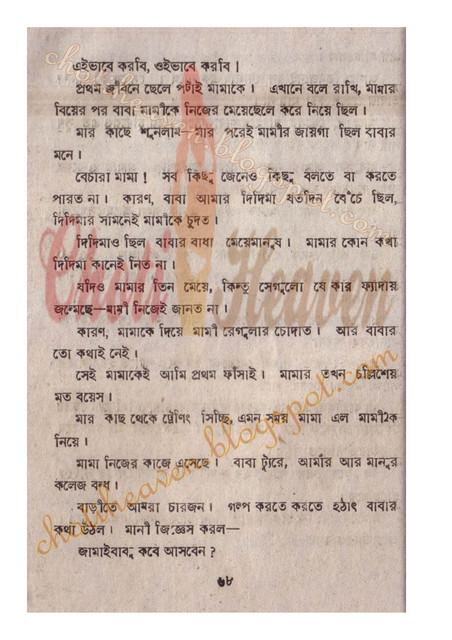 এইভাবে করবি, ওইভাবে করবি।
প্রথম জীবনে ছেলে পটাই মামাকে। এখানে বলে রাখি, মামার
বিয়ের পর বাবা মামীকে নিজের মেয়েছেলে করে নিয়ে ছিল।
মার কাছে শুনলাম—মার পরেই মামীর জায়গা ছিল বাবার
মনে।
বেচারা মামা! সব কিছু জেনেও কিছু বলতে বা করতে
পারত না। কারণ, বাবা আমার দিদিমা যতদিন বেঁচে ছিল,
দিদিমার সামনেই মামীকে চুদত।
দিদিমাও ছিল বাবার বাধা মেয়েমানুষ। মামার কোন কথা
দিদিমা কানেই নিত না।
যদিও মামার তিন মেয়ে, কিন্তু সেগুলো যে কার ফ্যাদায়
জন্মেছে—মামী নিজেই জানত না।
কারণ, মামাকে দিয়ে মামী রেগুলার চোদাত। আর বাবার
তো কথাই নেই।
সেই মামাকেই আমি প্রথম ফাঁসাই। মামার তখন চল্লিশের
মত বয়েস।
মার কাছ থেকে ট্রেণিং নিচ্ছি, এমন সময় মামা এল মামীকে
নিয়ে।
মামা নিজের কাজে এসেছে। বাবা ট্যুরে, আমার আর মানুর
কলেজ বন্ধ।
বাড়ীতে আমরা চারজন। গল্প করতে করতে হঠাৎ বাবার
কথা উঠল। মামী জিজ্ঞেস করল—
জামাইবাবু কবে আসবেন?
৬৮
Choti Heaven
chotiheaven.blogspot.com
chotiheaven.blogspot.com